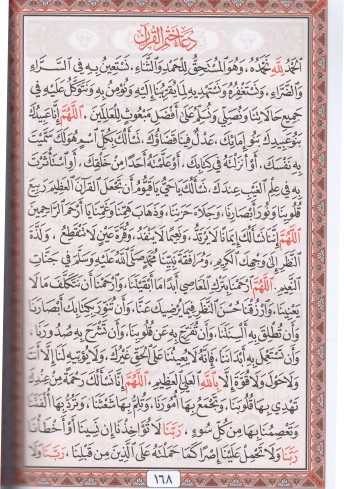 دعاء ختم القرآن
الحمد لله نحمده، وهو المستحق للحمد والثناء، نستعين به في السراء
والضراء، ونستغفره ونستهديه لما يقربنا إليه ونؤمن به ونتوكل عليه في
جميع حالاتنا ونصلي ونسلم على أفضل مبعوث للعالمين، اللهم إنا عبيدك
بنو عبيدك بنو إمائك، عدل فينا قضاؤك، نسألك بكل اسم هو لك سميت
به نفسك، أو أنزلته في كتابك، أو علمته أحدا من خلقك، أو استأثرت
به في علم الغيب عندك، نسألك يا حي يا قيوم أن تجعل القرآن العظيم ربيع
قلوبنا ونور أبصارنا، وجلاء حزننا، وذهاب همنا وغمنا يا أرحم الراحمين
اللهم إنا نسألك إيمانا لا يرتد، ونعيما لا ينفد، وقرة عين لا تنقطع، ولذة
النظر إلى وجهك الكريم، ومرافقة نبينا محمد صلى الله عليه وسلم في جنات
النعيم. اللهم ارحمنا بترك المعاصي أبدا ما أبقيتنا، وارحمنا أن نتكلف ما لا
يعنينا، وارزقنا حسن النظر فيما يرضيك عنا، وأن تنور بكتابك أبصارنا
وأن تطلق به ألسنتنا، وأن تفرج به عن قلوبنا، وأن تشرح به صدورنا،
وأن تستعمل به أبداننا، فإنه لا يعيننا على الحق غيرك، ولا يؤتيه لنا إلا أنت
ولا حول ولا قوة إلا بالله العلي العظيم. اللهم إنا نسألك رحمة من عندك
تهدي بها قلوبنا، وتجمع بها أمورنا، وتلم بها شعثنا، وترد بها ألفتنا
وتعصمنا بها من كل سوء، ربنا لا تؤاخذنا إن نسينا أو أخطأنا
ربنا ولا تحمل علينا إصرا كما حملته على الذين من قبلنا، ربنا ولا
١٦٨